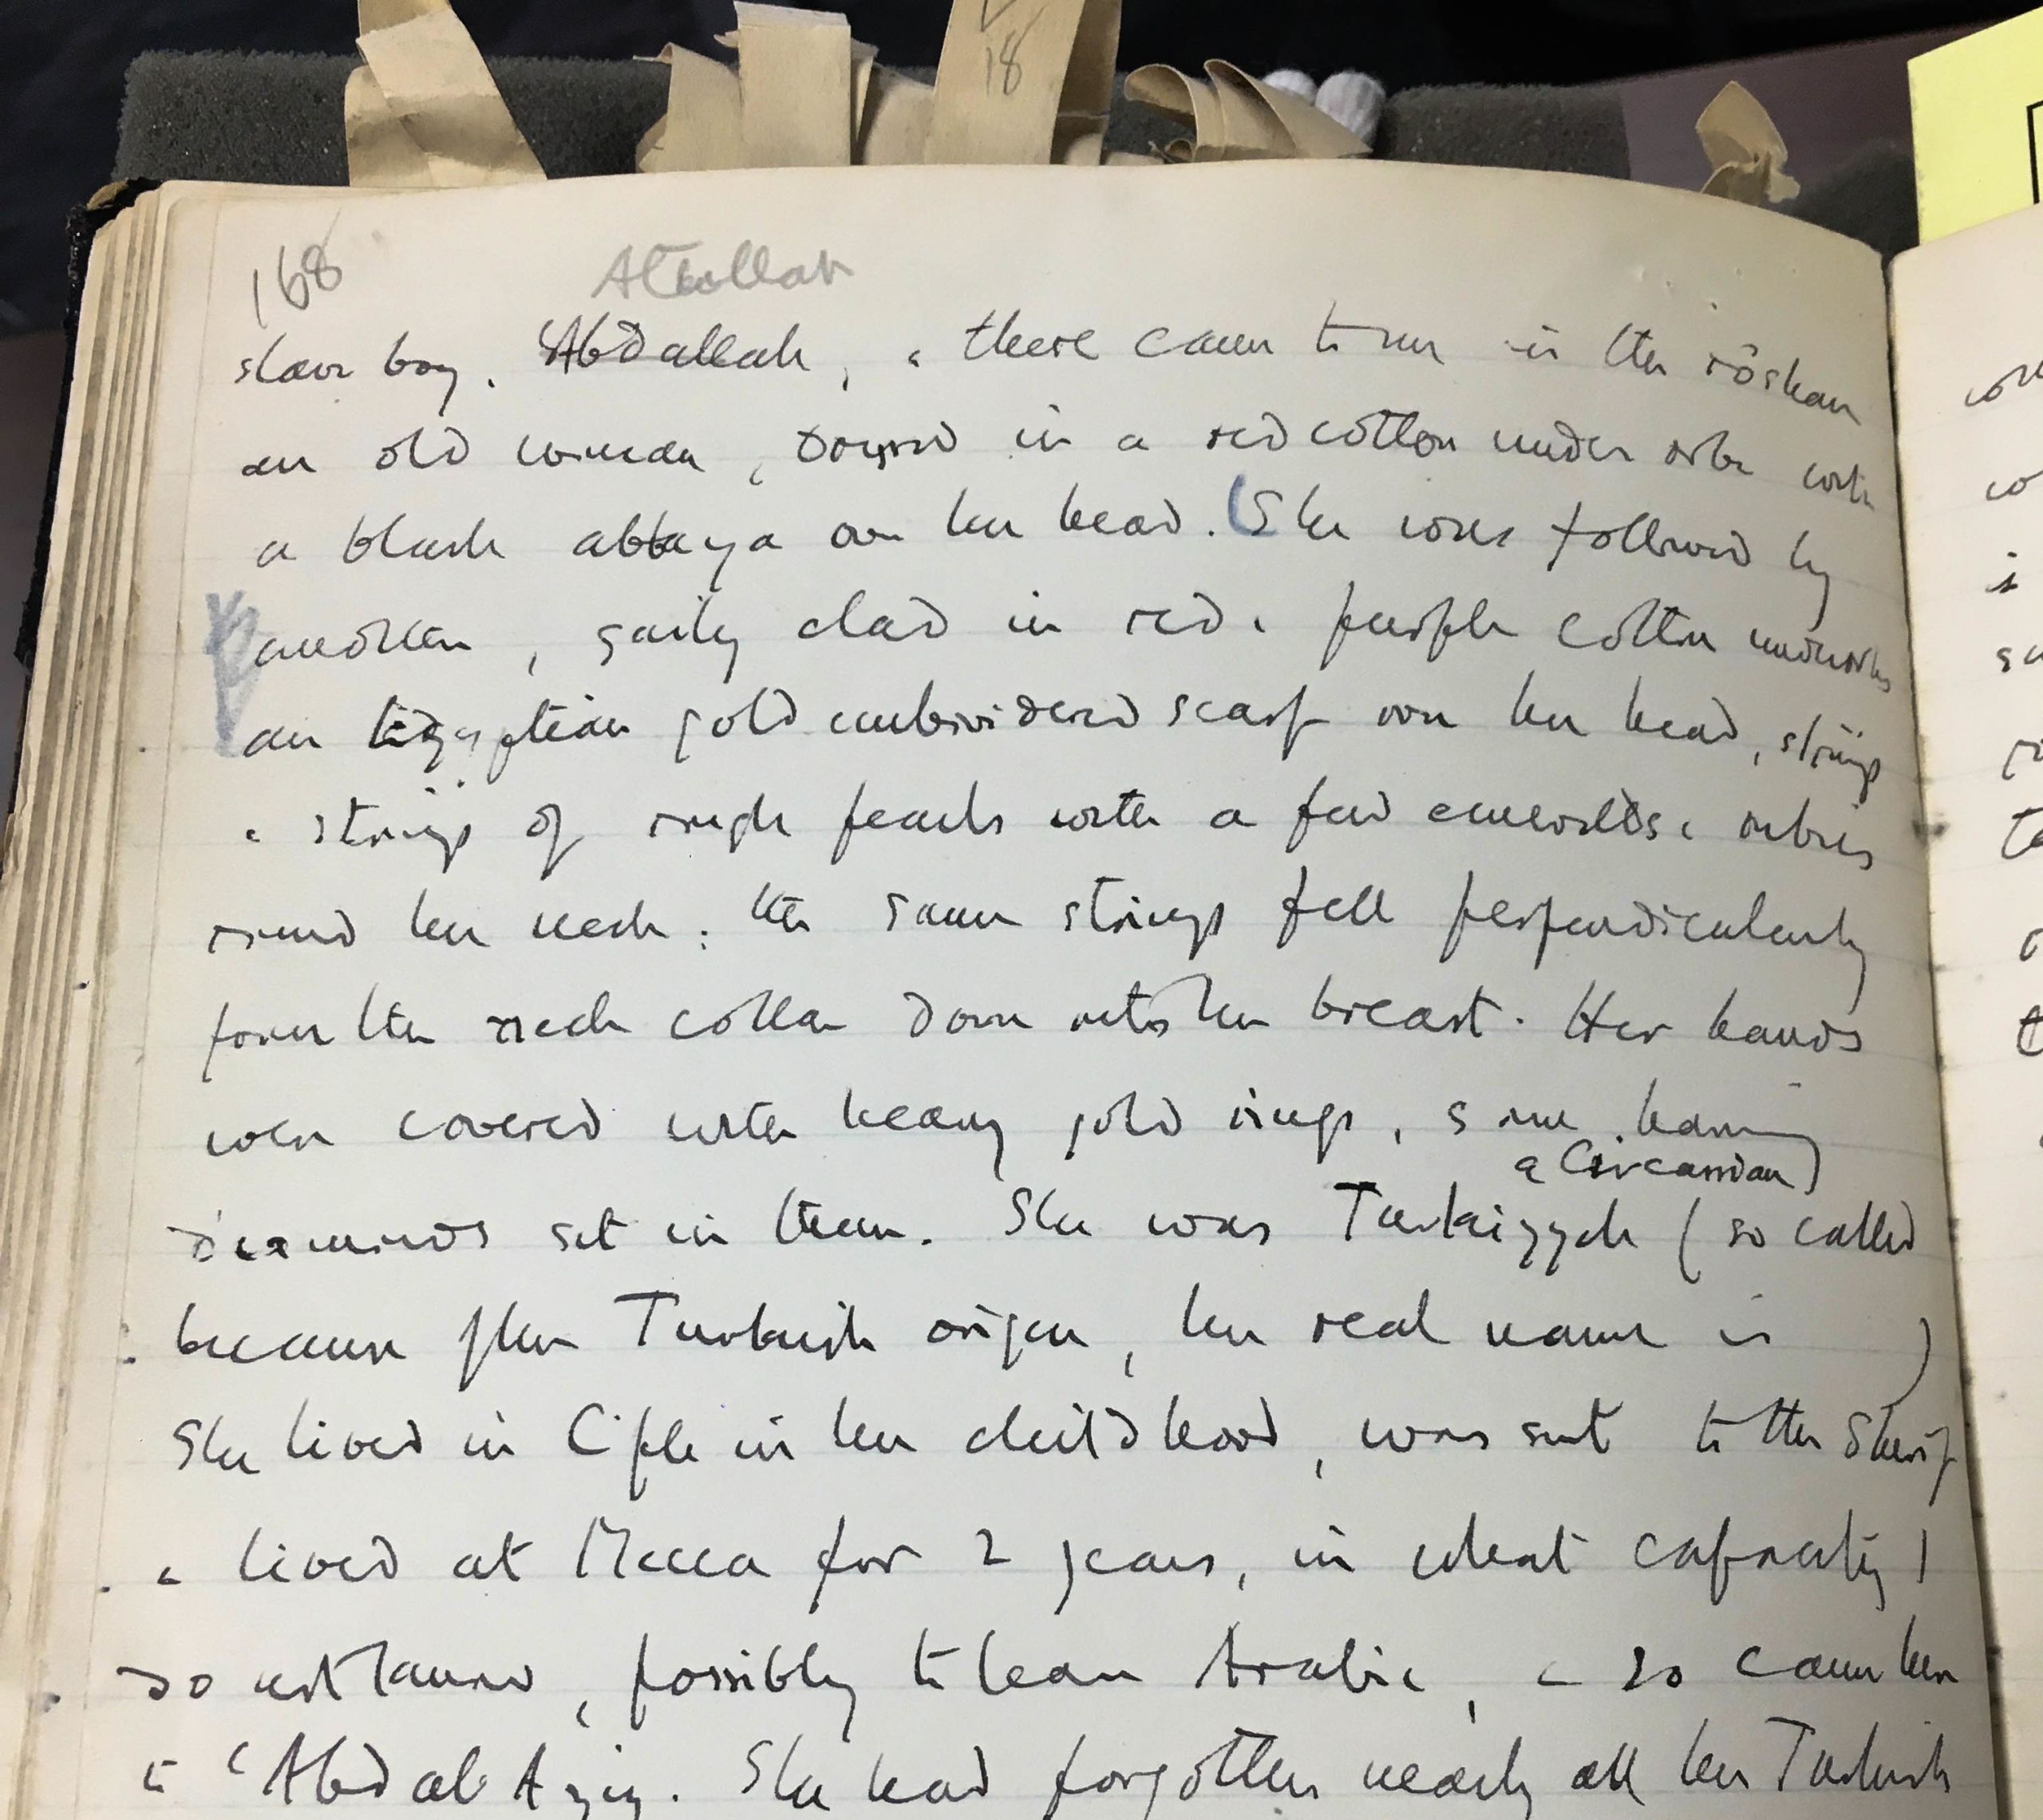 18
168
slave boy. Abdallah, & there came to me in the rôshan
an old woman, in a red cotton under robe with
a black abbaya over her head. (She was followed by
another, gaily clad in red & purple cotton underrobes
an Egyptian gold embroidered scarf over her head, strings
& strings of rough pearls with a few emeralds & rubies
round her neck: the same strings fell perpendicularly
from the neck collar down onto her breast. Her hands
were covered with heavy gold rings, some having
a Circassian)
diamonds set in them. She was Turkiyyah (so called
because of her Turkish origin, her real name is )
She lived in C'ple in her childhood, was sent to the Sherif
& lived at Mecca for 2 years, in what capacity I
do not know, possibly to learn Arabic, & so came here
to 'Abd al Aziz. She had forgotten nearly all her Turkish